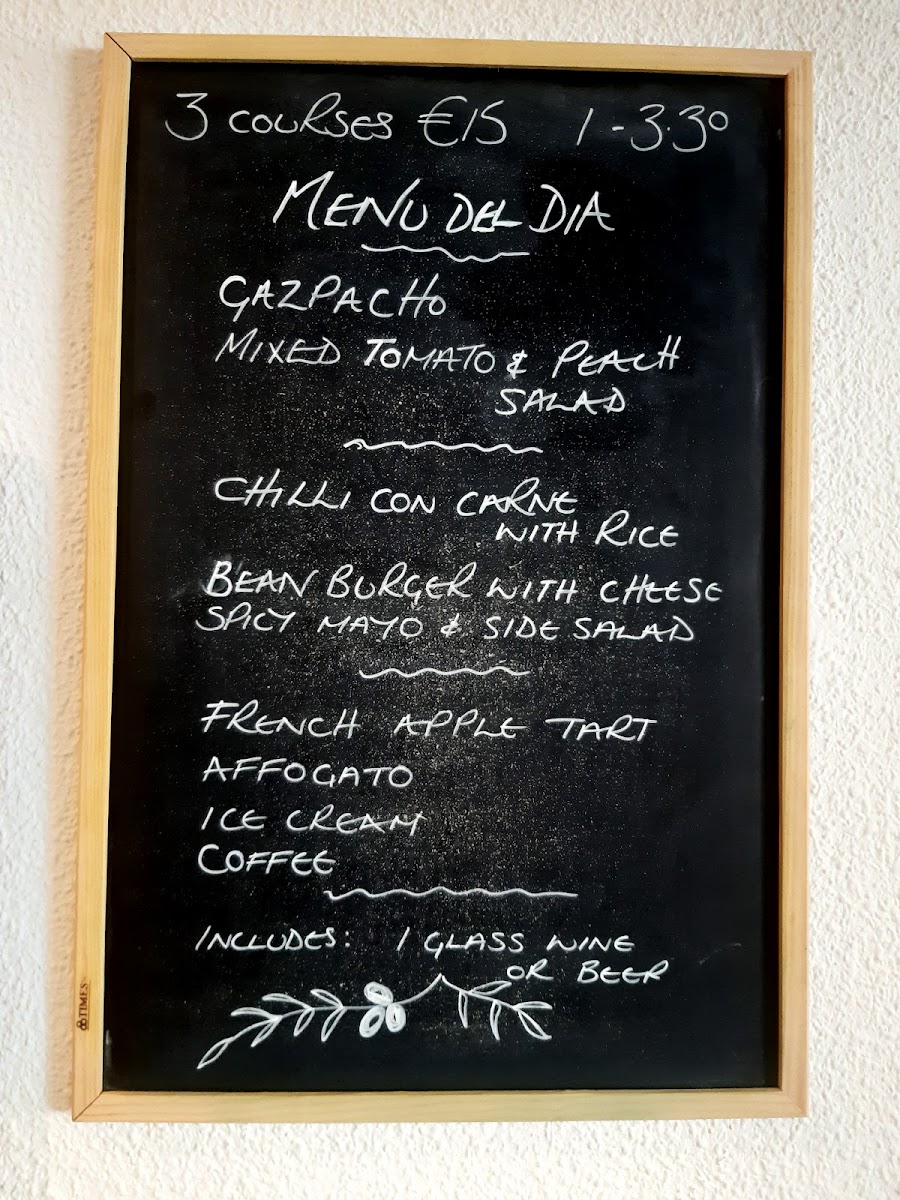 3 COURSES €15 1-3.30
MENU DEL DIA
GAZPACHO
MIXED TOMATO & PEACH
SALAD
CHILLI CON CARNE
WITH RICE
BEAN BURGER WITH CHEESE
SPICY MAYO & SIDE SALAD
FRENCH APPLE TART
AFFOGATO
ICE CREAM
COFFEE
INCLUDES: 1 GLASS WINE
OR BEER
TIMES